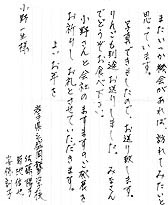 またいつか機会があれば、訪れてみたいと
思っています。
写真できましたので、お送り致します。
りんごも別途お送りしました。みなさん
でお食べ下さい。
小野さんと会社のますますのご発展を
お祈りし、お礼とさせていただきます。
よいお年を
小野一生様
岩手県立盛岡農業高校
佐藤
菊地